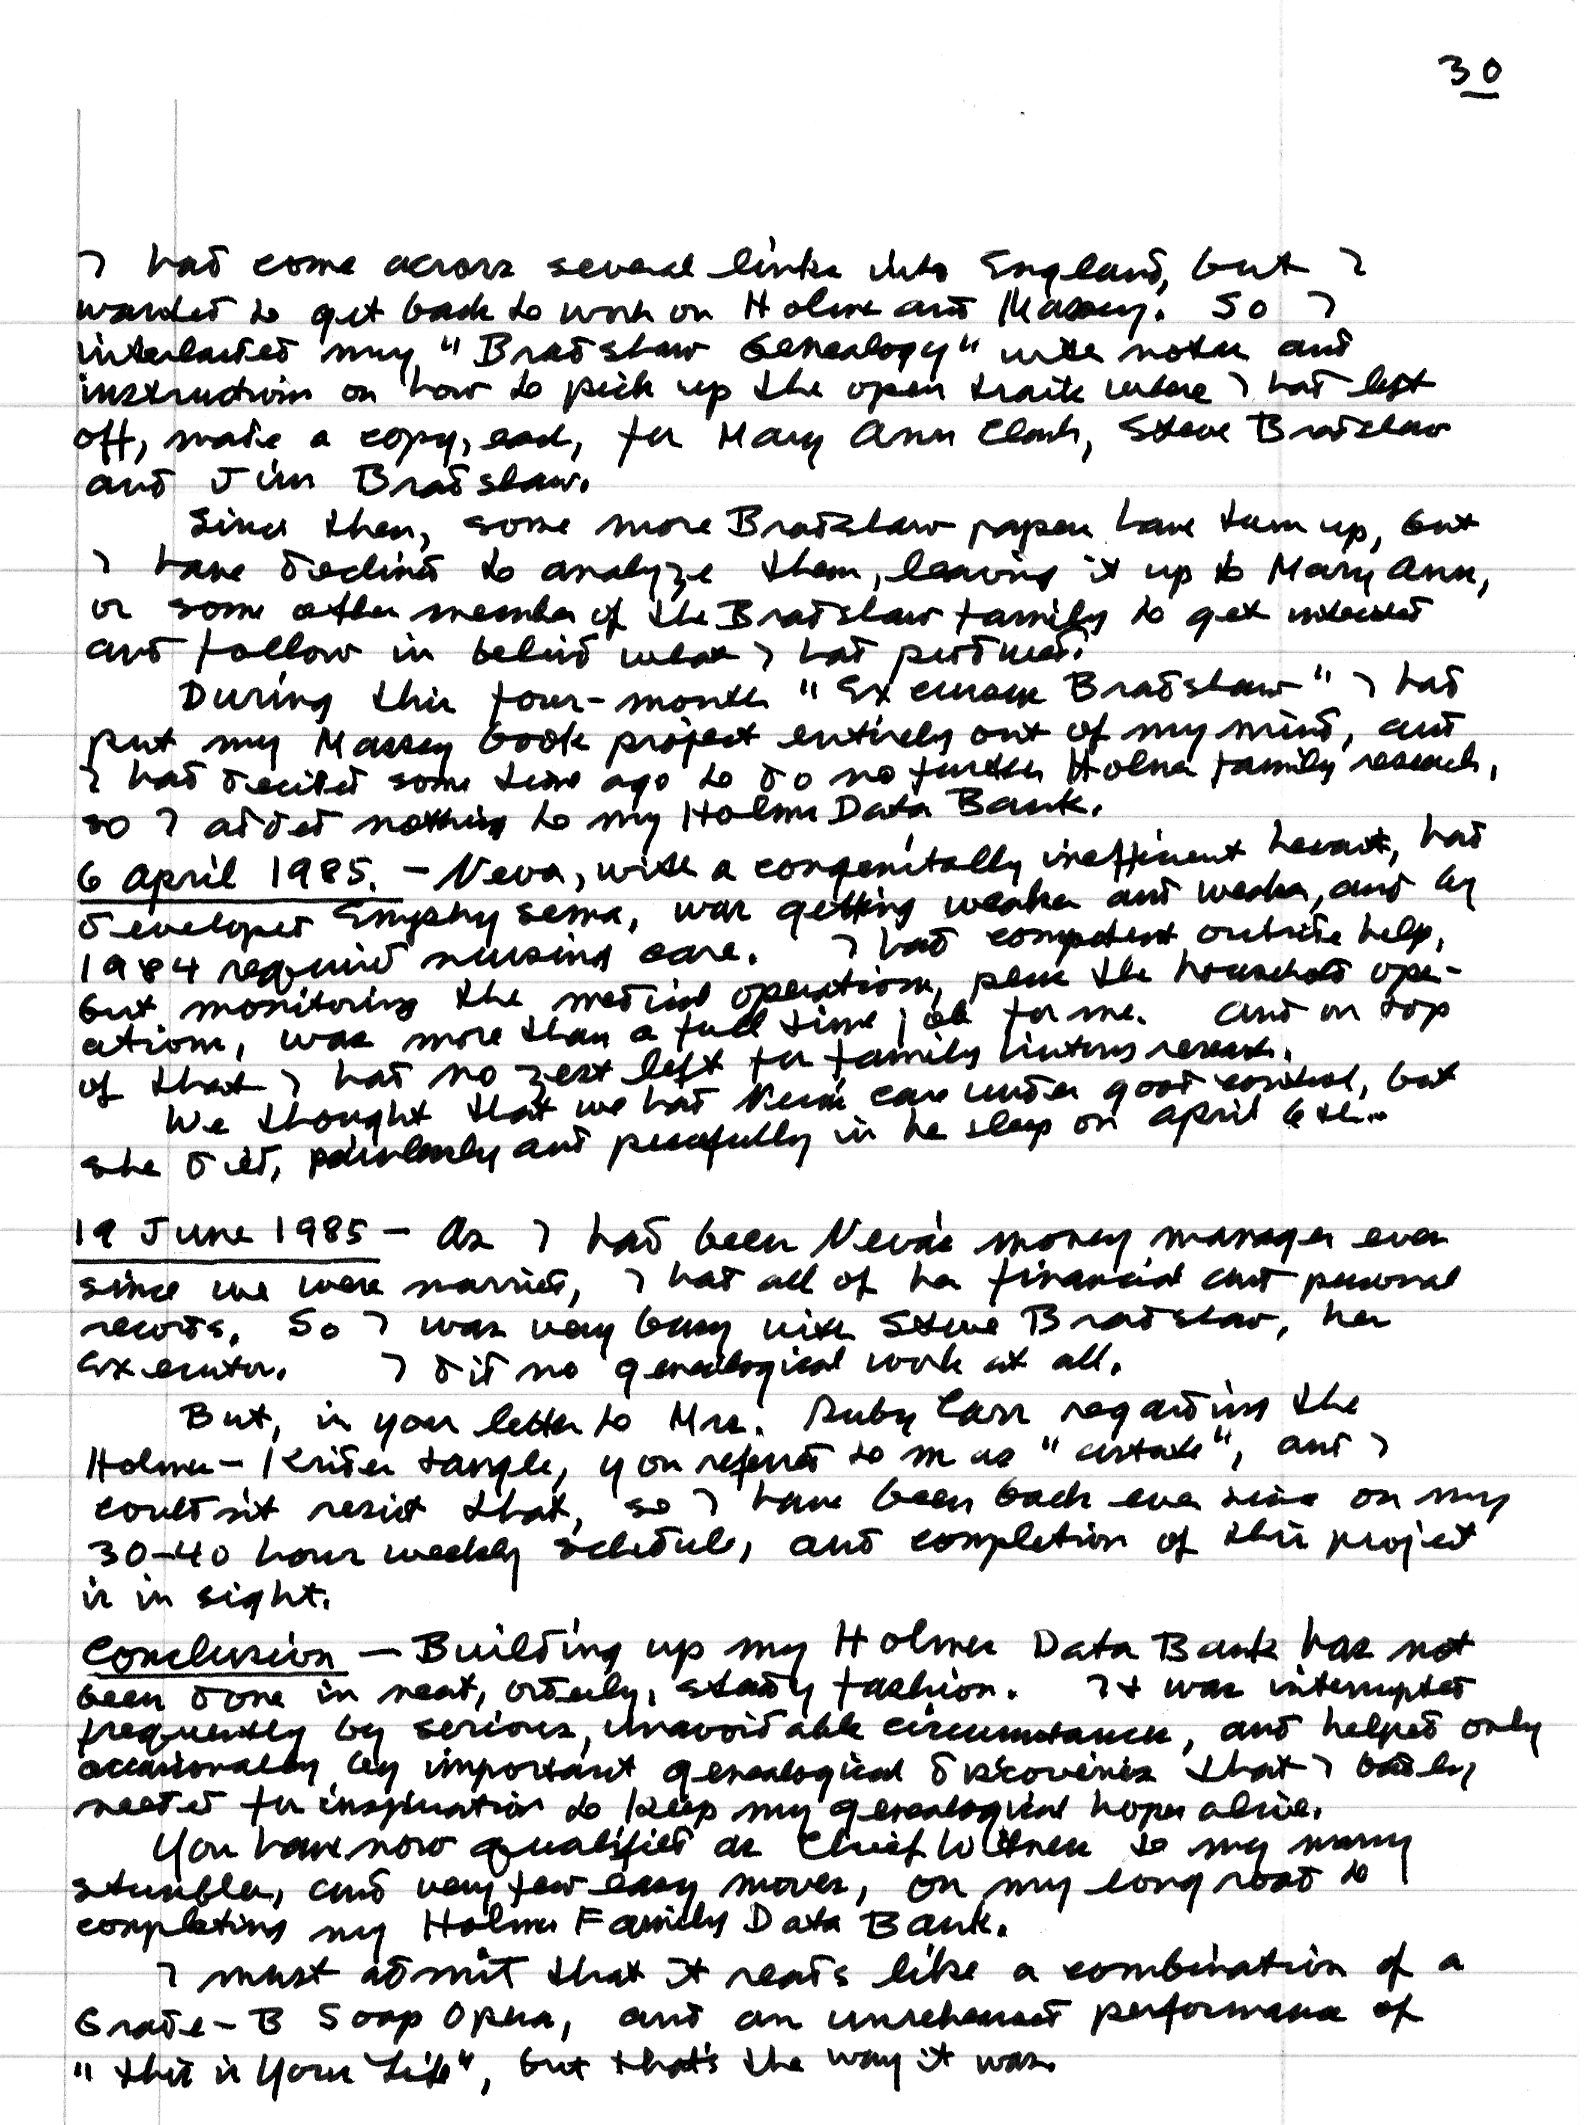 30
I had come across several links into England, but I
wanted to get back to work on Holmes and Massey. So I
interlarded my "Bradshaw Genealogy" with notes and
instructions on how to pick up the open trails where I had left
off, made a copy, each, for Mary Ann Clark, Steve Bradshaw
and Jim Bradshaw.
Since then, some more Bradshaw papers have turn up, but
I have declined to analyze them, leaving it up to Mary Ann,
or some other member of the Bradshaw family to get interested
and follow in behind what I had produced.
During this four-month "Excursion Bradshaw" I had
put my Massey book project entirely out of my mind, and
I had decided some time ago to do no further Holmes family research,
so I added nothing to my Holmes Data Bank.
6 April 1985. - Neva, with a congenitally inefficient heart, had
developed Emphysema, was getting weaker and weaker, and by
1984 required nursing care. I had competent outside help,
but monitoring the medical operations, plus the household oper-
ations, was more than a full time job for me. And on top
of that I had no zest left for family history research.
We thought that we had Neva's care under good control, but
she died, painlessly and peacefully in her sleep on April 6th.
19 June 1985 - As I had been Neva's money manager ever
since we were married, I had all of her financial and personal
records. So I was very busy with Steve Bradshaw, her
Executor. I did no genealogical work at all.
But, in your letter to Mrs. Ruby Carr regarding the
Holmes-Krider tangle, you referred to me as "astute", and I
couldn't resist that, so I have been back ever since on my
30-40 hour weekly schedule, and completion of this project
is in sight.
Conclusion - Building up my Holmes Data Bank has not
been done in neat, orderly, steady fashion. It was interrupted
frequently by serious, unavoidable circumstances, and helped only
occasionally by important genealogical discoveries that I badly
needed for inspiration to keep my genealogical hopes alive.
You have now qualified as Chief Witness to my many
stumbles, and very few easy moves, on my long road to
completing my Holmes Family Data Bank.
I must admit that it reads like a combination of a
Grade-B Soap Opera, and an unrehearsed performance of
"This is Your Life", but that's the way it was.